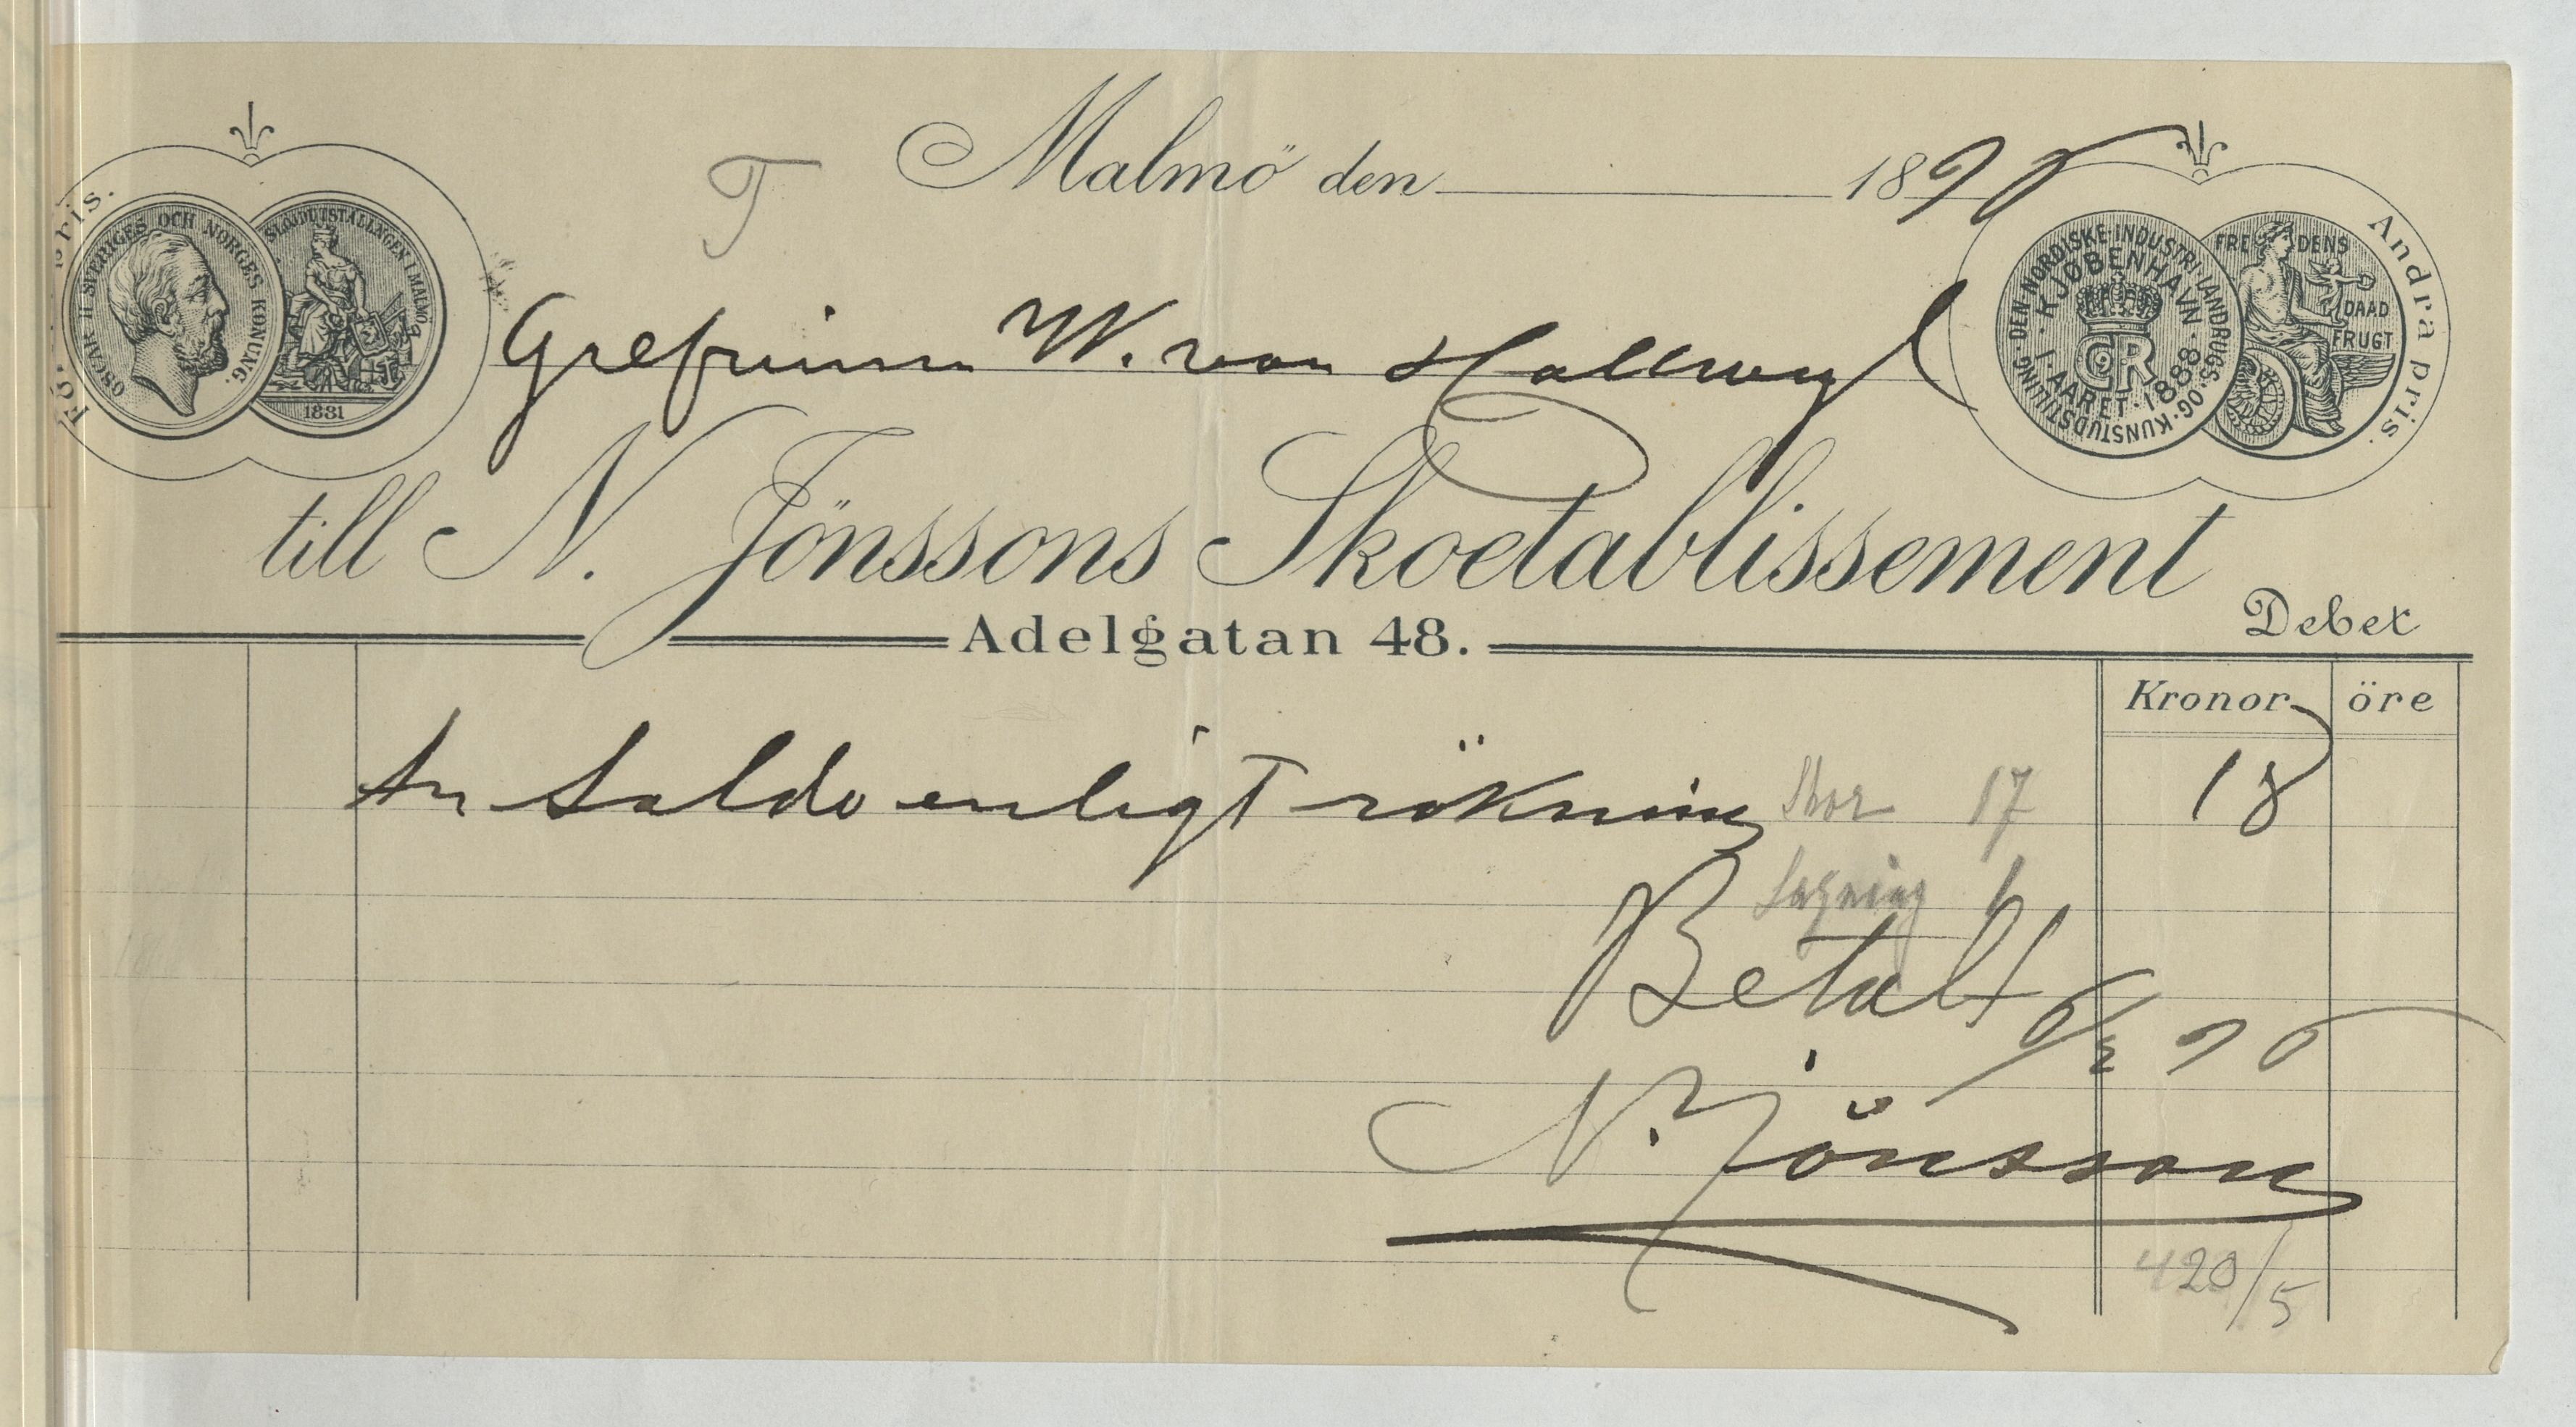 Malmö den 1890
T
OSCAR II SVERIGES OCH NORGES KONUNG.
SLÖJDUTSTÄLLNGEN I MALMÖ
1881
pris.
DEN NORDISKE INDUSTRI-LANDBRUGS-OG-KUNSTUDSTILLING
KJØBENHAVN
I AARET 1888
FREDENS DAAD FRUGT
Andra pris.
Grefvinnan W. von Hallwyl
till N. Jönssons Skoetablissement
Debet
Adelgatan 48.
Kronor öre
An Saldo enligt räkning Skor 17 18
Lagning 1
Betalt 6/2 90
N. Jönsson
420/5